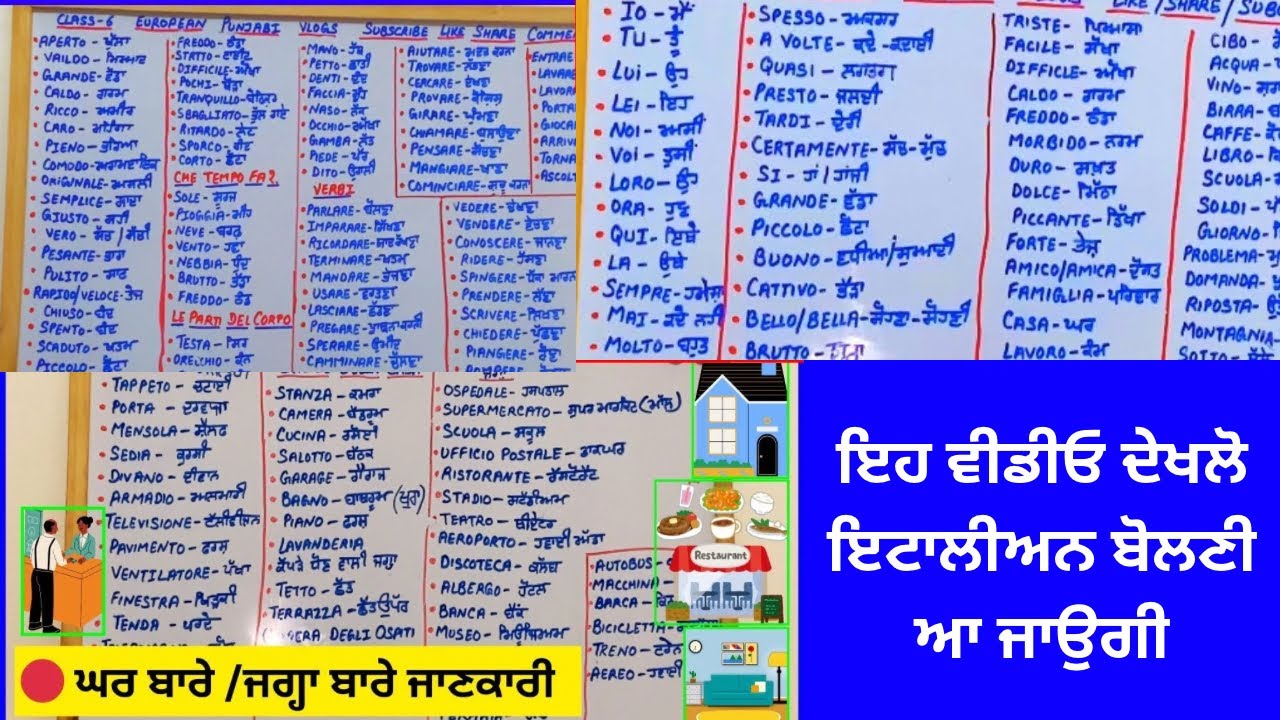 CLASS-6 EUROPEAN PUNJABI VLOGS SUBSCRIBE LIKE SHARE COMME
APERTO - ਖੁੱਲਾ
VAILDO -
GRANDE - ਵੱਡਾ
CALDO - ਗਰਮ
RICCO - ਅਮੀਰ
CARO - ਮਹਿੰਗਾ
PIENO - ਭਰਿਆ
COMODO - ਆਰਾਮਦਾਇਕ
ORIGINALE - ਅਸਲੀ
SEMPLICE - ਸਾਦਾ
GIUSTO - ਸਹੀ
VERO - ਸੱਚ / ਸੱਚਾਂ
PESANTE - ਭਾਰਾ
PULITO - ਸਾਫ
RAPIDO/VELOCE - ਤੇਜ਼
CHIUSO - ਬੰਦ
SPENTO - ਬੰਦ
SCADUTO - ਖਤਮ
PICCOLO - ਛੋਟਾ
FREDDO - ਠੰਡਾ
STRTTO - ਟਾਈਟ
DIFFICILE - ਔਖਾ
POCHI - ਥੋੜਾ
TRANQUILLO - ਬੇਫਿਕਰ
SBAGLIATO - ਭੁੱਲ ਗਏ
RITARDO - ਲੇਟ
SPORCO - ਗੰਦ
CORTO - ਛੋਟਾ
CHE TEMPO FA?
SOLE - ਸੂਰਜ
PIOGGIA - ਮੀਂਹ
NEVE - ਬਰਫ
VENTO - ਹਵਾ
NEBBIA - ਧੁੰਦ
BRUTTO - ਭੈੜਾ
FREDDO - ਠੰਡ
LE PARTI DEL CORPO
TESTA - ਸਿਰ
ORECCHIO - ਕੰਨ
MANO - ਹੱਥ
PETTO - ਛਾਤੀ
DENTI - ਦੰਦ
FACCIA - ਮੂੰਹ
NASO - ਨੱਕ
OCCHIO - ਅੱਖਾਂ
GAMBA - ਲੱਤ
PIEDE - ਪੈਰ
DITO - ਉਂਗਲੀ
VERBI
PARLARE - ਬੋਲਣਾ
IMPARARE - ਸਿੱਖਣਾ
RICORDARE - ਯਾਦ ਰੱਖਣਾ
TERMINARE - ਖਤਮ
MANDARE - ਭੇਜਣਾ
USARE - ਵਰਤਣਾ
LASCIARE - ਛੱਡਣਾ
PREGARE - ਪ੍ਰਾਥਨਾ ਕਰਨੀ
SPERARE - ਉਮੀਦ
CAMMINARE - ਚੱਲਣਾ
AIUTARE - ਮਦਦ ਕਰਨਾ
TROVARE - ਲੱਭਣਾ
CERCARE - ਲੱਭਣਾ
PROVARE - ਕੋਸ਼ਿਸ਼
GIRARE - ਘੁੰਮਣਾ
CHIAMARE - ਬਲਾਉਣਾ
PENSARE - ਸੋਚਣਾ
MANGIARE - ਖਾਣਾ
COMINCIARE - ਸ਼ੁਰੂ ਕਰਨਾ
VEDERE - ਦੇਖਣਾ
VENDERE - ਵੇਚਣਾ
CONOSCERE - ਜਾਨਣਾ
RIDERE - ਹੱਸਣਾ
SPINGERE - ਧੱਕਾ ਮਾਰਨਾ
PRENDERE - ਲੈਣਾ
SCRIVERE - ਲਿਖਣਾ
CHIEDERE - ਪੁੱਛਣਾ
PIANGERE - ਰੋਣਾ
ENTRAE
LAVARE
LAVOR
PORTA
GIOCA
ARRIV
TORNA
ASCOLT
LIKE / SHARE / SUBS
IO - ਮੈਂ
TU - ਤੂੰ
LUI - ਉਹ
LEI - ਇਹ
NOI - ਅਸੀਂ
VOI - ਤੁਸੀਂ
LORO - ਉਹ
ORA - ਹੁਣ
QUI - ਇਥੇ
LA - ਉਥੇ
SEMPRE - ਹਮੇਸ਼ਾ
MAI - ਕਦੇ ਨਹੀਂ
MOLTO - ਬਹੁਤ
SPESSO - ਅਕਸਰ
A VOLTE - ਕਦੇ - ਕਦਾਈਂ
QUASI - ਲਗਭਗ
PRESTO - ਜਲਦੀ
TARDI - ਦੇਰੀ
CERTAMENTE - ਸੱਚ - ਮੁੱਚ
SI - ਹਾਂ / ਹਾਂਜੀ
GRANDE - ਵੱਡਾ
PICCOLO - ਛੋਟਾ
BUONO - ਵਧੀਆ / ਸੁਆਦੀ
CATTIVO - ਭੈੜਾ
BELLO/BELLA - ਸੋਹਣਾ - ਸੋਹਣੀ
BRUTTO -
TRISTE -
FACILE - ਸੌਖਾ
DIFFICLE - ਔਖਾ
CALDO - ਗਰਮ
FREDDO - ਠੰਡਾ
MORBIDO - ਨਰਮ
DURO - ਸਖ਼ਤ
DOLCE - ਮਿੱਠਾ
PICCANTE - ਤਿੱਖਾ
FORTE - ਤੇਜ਼
AMICO/AMICA - ਦੋਸਤ
FAMIGLIA - ਪਰਿਵਾਰ
CASA - ਘਰ
LAVORO - ਕੰਮ
CIBO -
ACQUA -
VINO -
BIRRA -
CAFFE -
LIBRO -
SCUOLA -
SOLDI -
GIORNO -
PROBLEMA -
DOMANDA -
RIPOSTA -
MONTAGNIA
SOTTO -
TAPPETO - ਚਟਾਈ
PORTA - ਦਰਵਾਜਾ
MENSOLA - ਸ਼ੈਲਫ
SEDIA - ਕੁਰਸੀ
DIVANO - ਦੀਵਾਨ
ARMADIO - ਅਲਮਾਰੀ
TELEVISIONE - ਟੈਲੀਵੀਜ਼ਨ
PAVIMENTO - ਫਰਸ਼
VENTILATORE - ਪੱਖਾ
FINESTRA - ਖਿੜਕੀ
TENDA - ਪਰਦੇ
STANZA - ਕਮਰਾ
CAMERA - ਬੈੱਡਰੂਮ
CUCINA - ਰਸੋਈ
SALOTTO - ਬੈਠਕ
GARAGE - ਗੈਰਾਜ
BAGNO - ਬਾਥਰੂਮ
PIANO - ਫਰਸ਼
LAVANDERIA
ਕੱਪੜੇ ਧੋਣ ਵਾਲੀ ਜਗ੍ਹਾ
TETTO - ਛੱਤ
TERRAZZA - ਛੱਤ ਉੱਪਰ
DEGLI OSATI
OSPEDALE - ਹਸਪਤਾਲ
SUPERMERCATO - ਸੁਪਰ ਮਾਰਕਿਟ (ਮੌਲ)
SCUOLA - ਸਕੂਲ
UFFICIO POSTALE - ਡਾਕਘਰ
RISTORANTE - ਰੈਸਟੋਰੈਂਟ
STADIO - ਸਟੇਡੀਅਮ
TEATRO - ਥੀਏਟਰ
AEROPORTO - ਹਵਾਈ ਅੱਡਾ
DISCOTECA - ਕਲੱਬ
ALBERGO - ਹੋਟਲ
BANCA - ਬੈਂਕ
MUSEO - ਮਿਊਜ਼ੀਅਮ
AUTOBUS -
MACCHINA
BARCA -
BICICLETTA -
TRENO - ਟਰੇਨ
AEREO - ਹਵਾਈ
Restaurant
ਇਹ ਵੀਡੀਓ ਦੇਖਲੋ
ਇਟਾਲੀਅਨ ਬੋਲਣੀ
ਆ ਜਾਉਗੀ
ਘਰ ਬਾਰੇ /ਜਗ੍ਹਾ ਬਾਰੇ ਜਾਣਕਾਰੀ